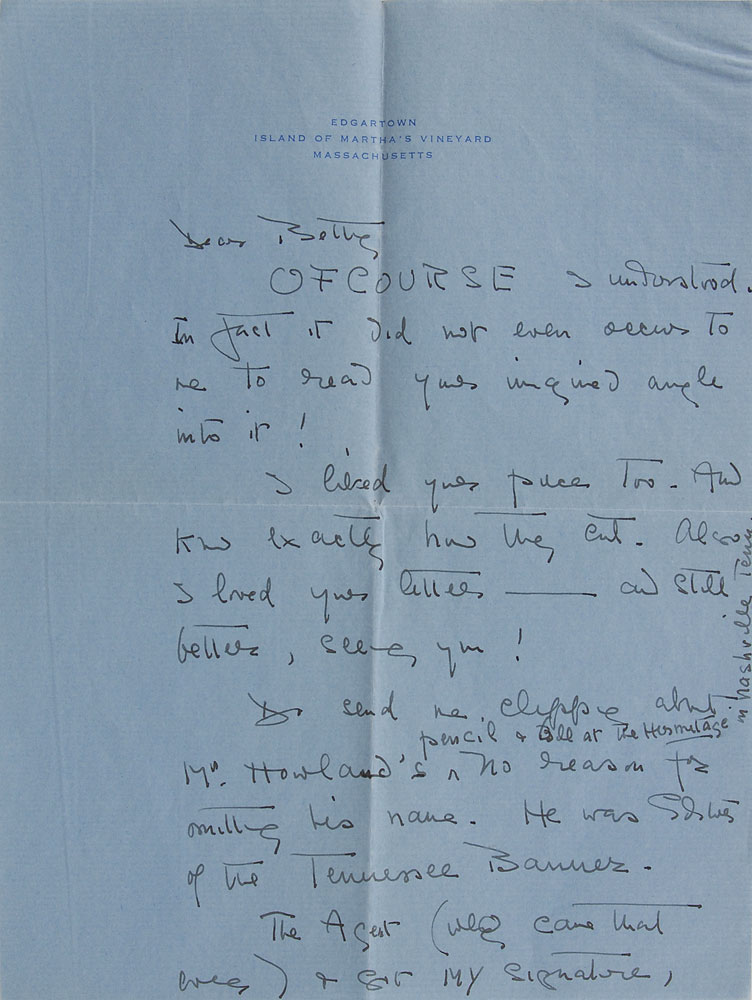 EDGARTOWN
ISLAND OF MARTHA'S VINEYARD
MASSACHUSETTS
Dear Betty
OF COURSE I understood.
In fact it did not even occur to
me to read your imagined angle
into it!
I liked your piece too. And
know exactly how they cut. Also
I loved your letters — and still
better, seeing you!
Do send me clipping about
pencil & all at the Hermitage
in Nashville Tenn
Mr. Howland's ^ No reason for
omitting his name. He was Editor
of the Tennessee Banner.
The Agent (who came that
) & got MY signature,